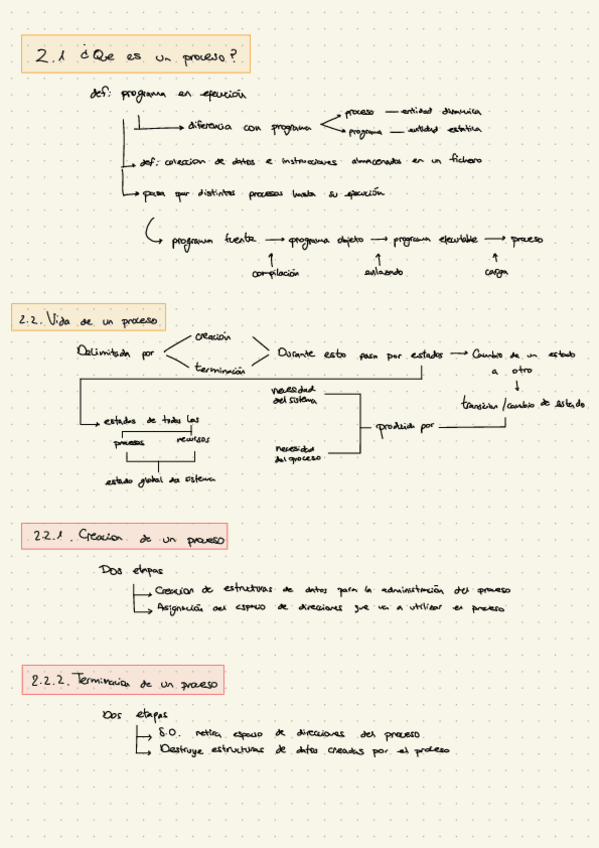 2.1 ¿Que es un proceso?
def: programa en ejecución
diferencia con programa
proceso — entidad dinamica
programa — entidad estatica
def: coleccion de datos e instrucciones almacenados en un fichero
pasa por distintos procesos hasta su ejecución
programa fuente → programa objeto → programa ejecutable → proceso
compilación enlazando carga
2.2. Vida de un proceso
Delimitada por
creación
terminación
Durante esto pasa por estados → Cambio de un estado
a otro
transicion / cambio de estado
necesidad
del sistema
producida por
necesidad
del proceso
estados de todos los
procesos recursos
estado global del sistema
2.2.1. Creacion de un proceso
Dos etapas
Creacion de estructuras de datos para la administración del proceso
Asignación del espacio de direcciones que va a utilizar el proceso
2.2.2. Terminacion de un proceso
Dos etapas
S.O. retira espacio de direcciones del proceso
Destruye estructuras de datos creadas por el proceso